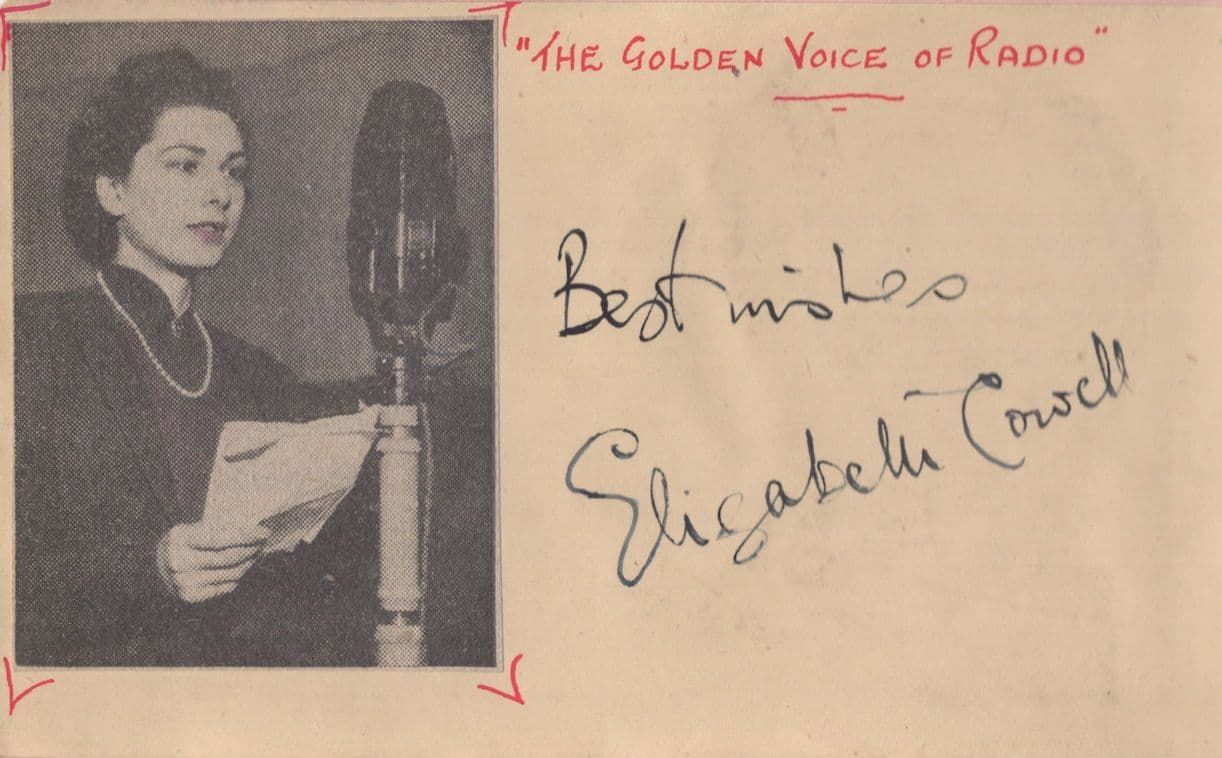 "THE GOLDEN VOICE OF RADIO"
Best wishes
Elizabeth Cowell